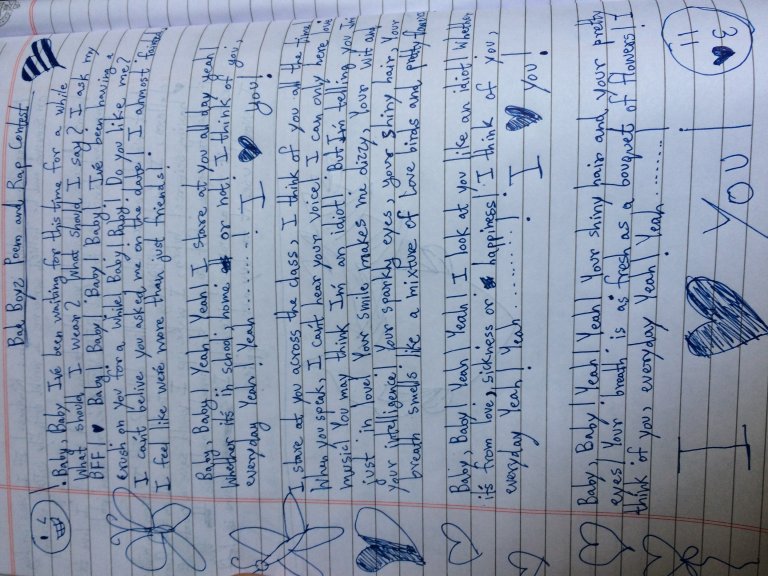 Bad Boyz Poem and Rap Contest
Baby, Baby I've been waiting for this time for a while
What should I wear? What should I say? I ask my
BFF! Baby! Baby! Baby! Baby! I've been having a
crush on you for a while! Baby! Baby! Do you like me?
I can't belive you asked me on the date! I almost fainted,
I feel like we're more than just friends!
Baby, Baby! Yeah! Yeah! I stare at you all day yeah!
Whether it's in school, home or not! I think of you,
everyday Yeah! Yeah..........! I you!
I stare at you across the class, I think of you all the time!
When you speak, I can't hear your voice! I can only here love
music! You may think I'm an idiot! But I'm telling you, I'm
just in love! Your smile makes me dizzy, your wit and
your intelligence! Your sparky eyes, your shiny hair, your
breath smells like a mixture of love birds and pretty flowers
Baby, Baby! Yeah! Yeah! I look at you like an idiot! Whether
it's from love, sickness or happiness! I think of you,
everyday Yeah! Yeah..........! I you!
Baby, Baby! Yeah! Yeah! Your shiny hair and your pretty
eyes! Your breath is as fresh as a bouquet of flowers! I
think of you, everyday Yeah! Yeah..........!
I YOU!